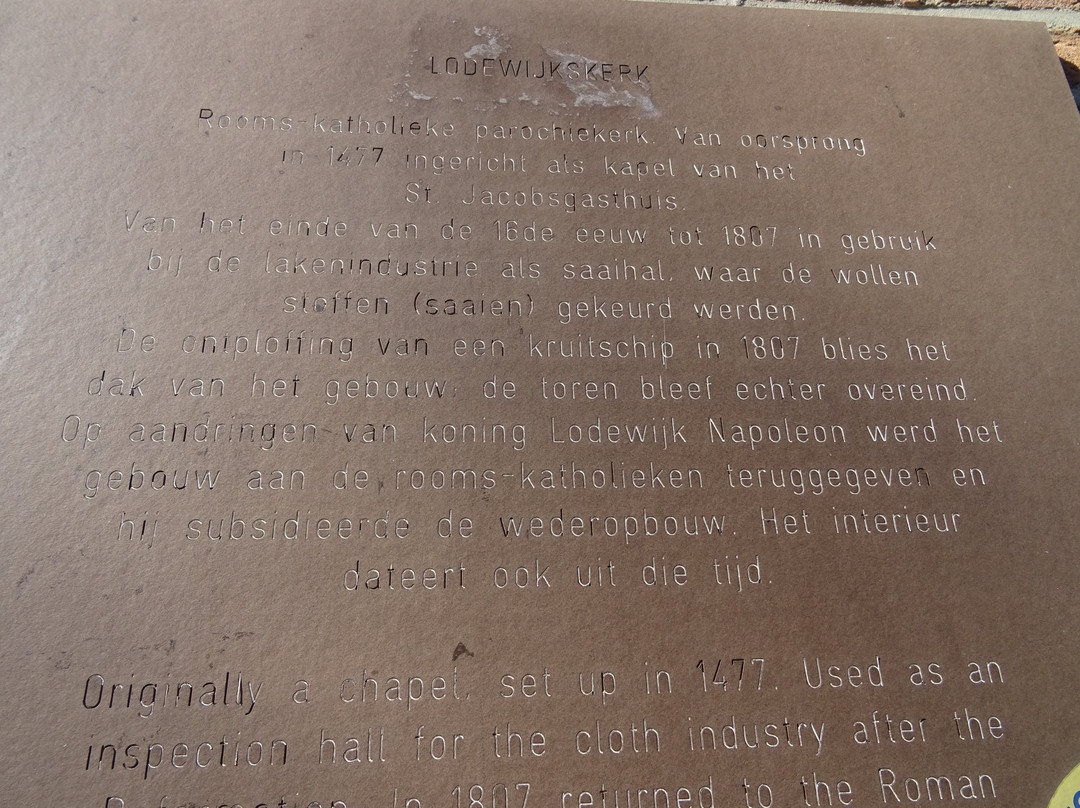 LODEWIJKSKERK
Rooms-katholieke parochiekerk. Van oorsprong
in 1477 ingericht als kapel van het
St. Jacobsgasthuis.
Van het einde van de 16de eeuw tot 1807 in gebruik
bij de lakenindustrie als saaihal, waar de wollen
stoffen (saaien) gekeurd werden.
De ontploffing van een kruitschip in 1807 blies het
dak van het gebouw; de toren bleef echter overeind.
Op aandringen van koning Lodewijk Napoleon werd het
gebouw aan de rooms-katholieken teruggegeven en
hij subsidieerde de wederopbouw. Het interieur
dateert ook uit die tijd.
Originally a chapel, set up in 1477. Used as an
inspection hall for the cloth industry after the
Reformation. In 1807 returned to the Roman